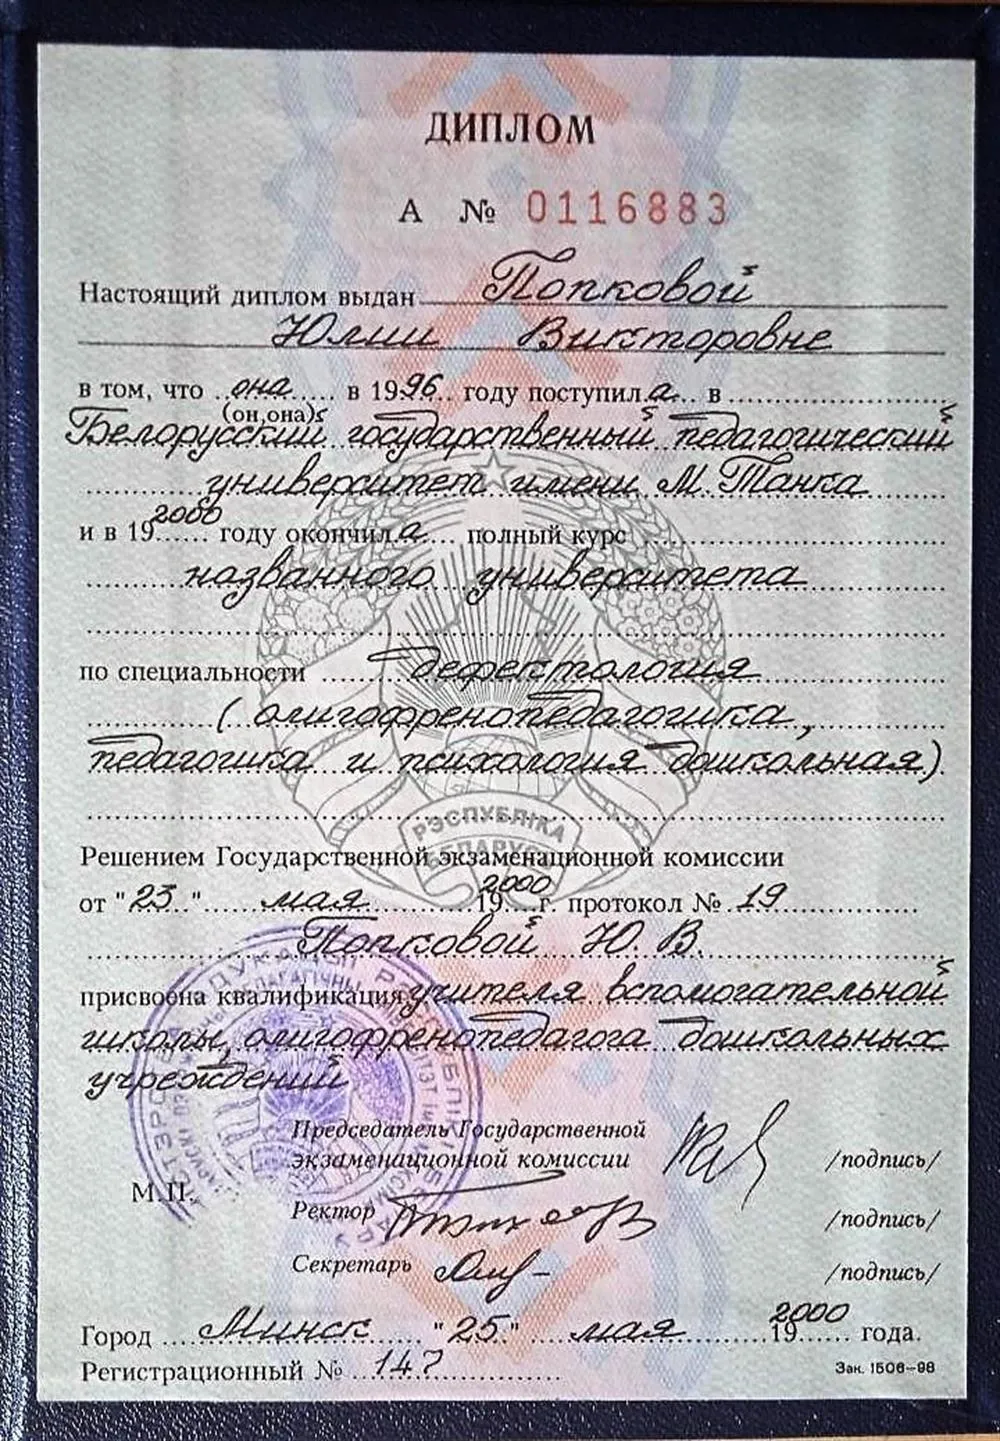 ДИПЛОМ
А № 0116883
Настоящий диплом выдан Попковой
Юлии Викторовне
в том, что она в 1996 году поступила в
(он, она)
Белорусский государственный педагогический
университет имени М. Танка
и в 19 2000 году окончила полный курс
названного университета
по специальности дефектология
(олигофренопедагогика,
педагогика и психология дошкольная)
РЭСПУБЛІКА
БЕЛАРУСЬ
Решением Государственной экзаменационной комиссии
от "23" мая 19 2000 г. протокол № 19
Попковой Ю. В.
присвоена квалификация учителя вспомогательной
школы, олигофренопедагога дошкольных
учреждений
Председатель Государственной
экзаменационной комиссии /подпись/
М.П.
Ректор /подпись/
Секретарь /подпись/
Город Минск "25" мая 19 2000 года.
Регистрационный № 147
Зак. 1506—98